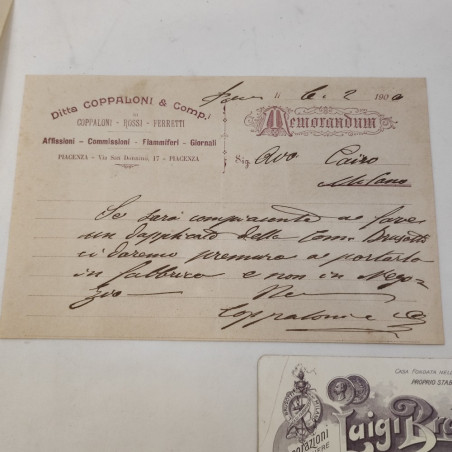 Ditta COPPALONI & Comp.i
DI
COPPALONI - ROSSI - FERRETTI
Affissioni - Commissioni - Fiammiferi - Giornali
PIACENZA - Via San Donnino, 17 - PIACENZA
li 6. 2 1900
Memorandum
Sig. Avv Cairo
Milano
Se sarà compiacente a fare
un duplicato della Com Brusotti
ci daremo premura a portarla
in fabbrica e non in Nego-
zio
Coppaloni e C
CASA FONDATA NEL
PROPRIO STAB
Luigi